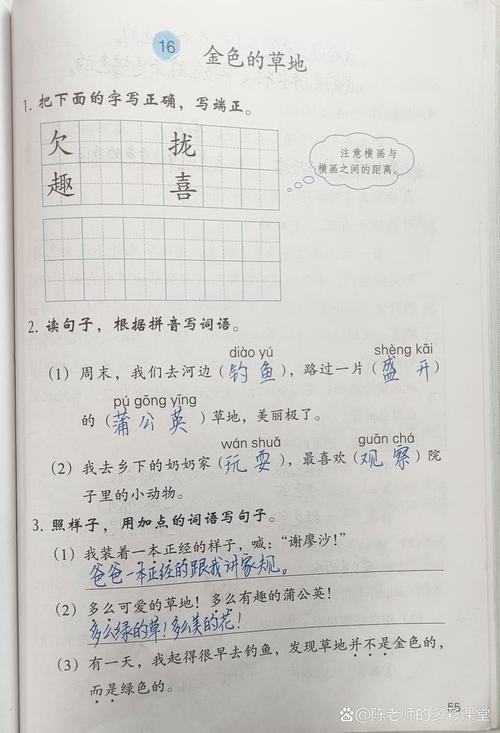 16
金色的草地
1. 把下面的字写正确，写端正。
欠 拢
趣 喜
注意横画与
横画之间的距离。
2. 读句子，根据拼音写词语。
diào yú shèng kāi
(1) 周末，我们去河边（钓鱼），路过一片（盛开）
pú gōng yīng
的（蒲公英）草地，美丽极了。
wán shuǎ guān chá
(2) 我去乡下的奶奶家（玩耍），最喜欢（观察）院
子里的小动物。
3. 照样子，用加点的词语写句子。
(1) 我装着一本正经的样子，喊：“谢廖沙！”
爸爸一本正经的跟我讲家规。
(2) 多么可爱的草地！多么有趣的蒲公英！
多么绿的草！多么美的花！
(3) 有一天，我起得很早去钓鱼，发现草地并不是金色的，
而是绿色的。
55
@陈老师的多彩课堂